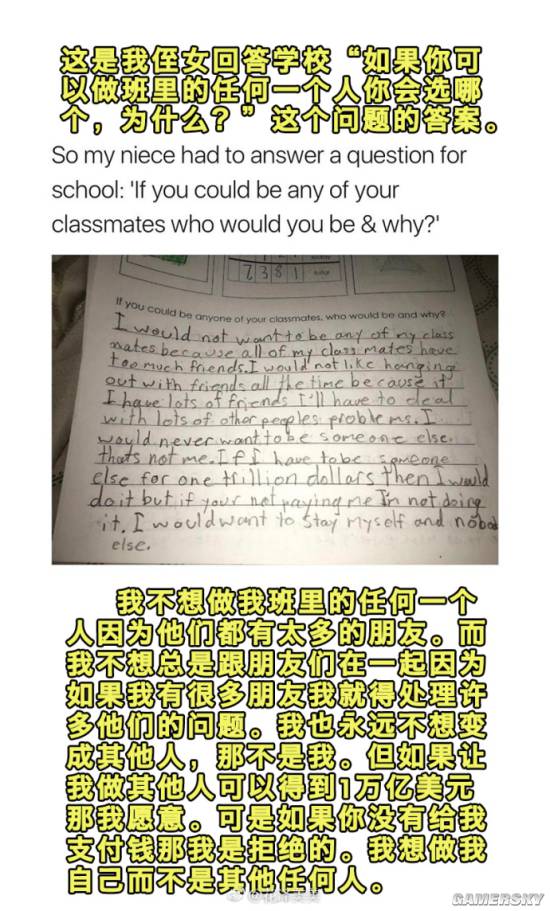 这是我侄女回答学校“如果你可
以做班里的任何一个人你会选哪
个，为什么？”这个问题的答案。
So my niece had to answer a question for
school: 'If you could be any of your
classmates who would you be & why?'
7381
If you could be anyone of your classmates, who would be and why?
I would not want to be any of my class
mates because all of my class mates have
too much friends. I would not like hanging
out with friends all the time because if
I have lots of friends I'll have to deal
with lots of other peoples problems. I
would never want to be someone else.
thats not me. If I have to be someone
else for one trillion dollars then I would
do it but if your not paying me Im not doing
it. I would want to stay myself and nobod
else.
我不想做我班里的任何一个
人因为他们都有太多的朋友。而
我不想总是跟朋友们在一起因为
如果我有很多朋友我就得处理许
多他们的问题。我也永远不想变
成其他人，那不是我。但如果让
我做其他人可以得到1万亿美元
那我愿意。可是如果你没有给我
支付钱那我是拒绝的。我想做我
自己而不是其他任何人。
GAMERSKY